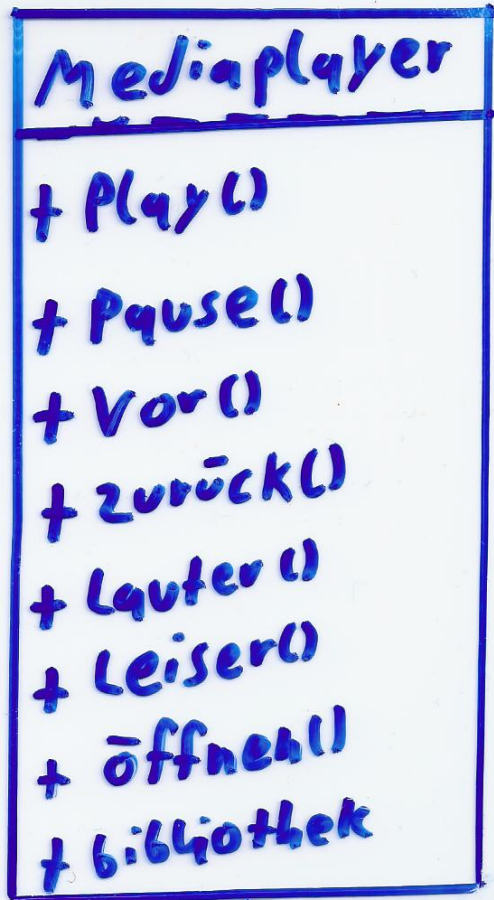 Mediaplayer
+ Play()
+ Pause()
+ Vor()
+ zurück()
+ Lauter()
+ Leiser()
+ öffnen()
+ bibliothek